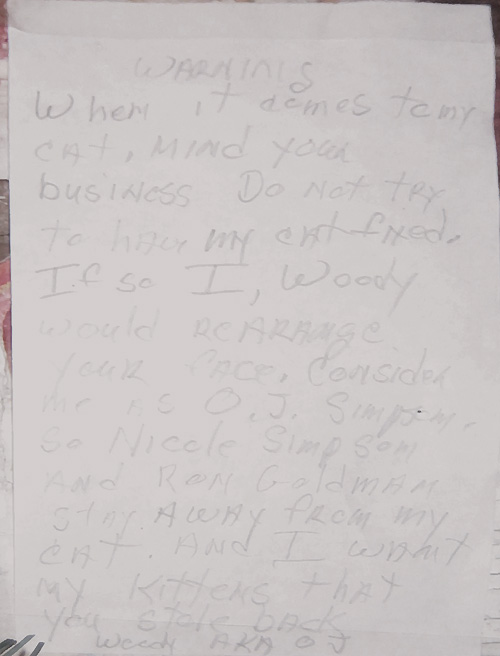 WARNING
When it comes to my
CAt, MIND your
business Do Not try
to have my CAt fixed.
If so I, Woody
would REARANGE
YOUR face. Consider
me AS O.J. Simpson.
So Nicole Simpson
AND Ron Goldman
stay AWAY from my
CAt. AND I WANT
My Kittens that
you stole back
Woody AKA OJ